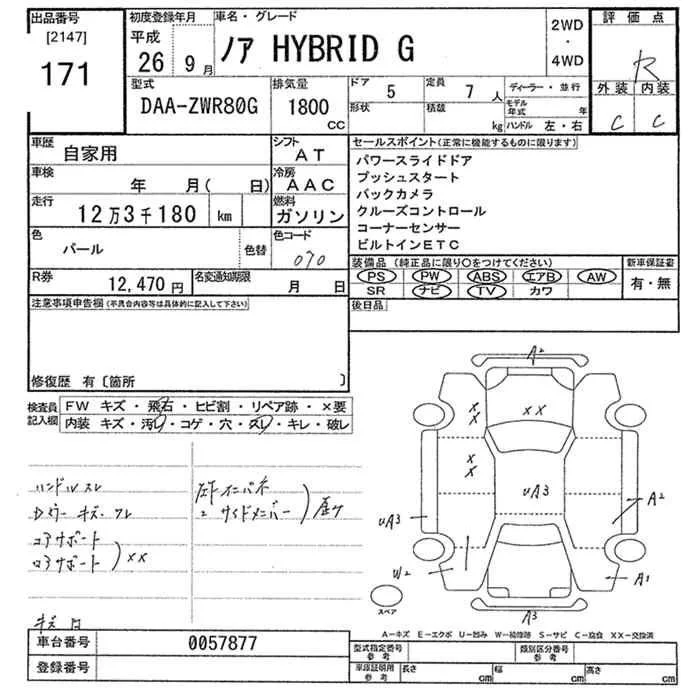 出品番号
[2147]
171
初度登録年月
平成
26 9月
車名・グレード
ノア HYBRID G
2WD
・
4WD
評価点
R
外装 内装
C C
型式
DAA-ZWR80G
排気量
1800
CC
ドア 5
定員 7 人
形状
積載 kg
ディーラー・並行
モデル年式 年
ハンドル 左・右
車歴 自家用
シフト AT
車検 年 月( 日)
冷房 AAC
走行 12万3千180 km
燃料 ガソリン
色 パール
色替
色コード 070
R券 12,470円
名変通知期限 月 日
セールスポイント(正常に機能するものに限ります)
パワースライドドア
プッシュスタート
バックカメラ
クルーズコントロール
コーナーセンサー
ビルトインETC
装備品(純正品に限り○をつけてください)
PS PW ABS エアB AW
SR ナビ TV カワ
新車保証書
有・無
後日品
注意事項申告欄(不具合内容等は具体的に記入して下さい)
修復歴 有〔箇所 〕
検査員記入欄
FW キズ・飛石・ヒビ割・リペア跡・×要
内装 キズ・汚レ・コゲ・穴・スレ・キレ・破レ
ハンドルスレ
コアサポート
ロアサポート
××
サイドメンバー
A2
××
××
××
UA3
UA3
A2
W2
A1
A3
スペア
A−キズ E−エクボ U−凹み W−補修跡 S−サビ C−腐食 XX−交換済
車台番号 0057877
登録番号
型式指定番号 参考
類別区分番号 参考
車庫証明用 参考
長さ cm
幅 cm
高さ cm